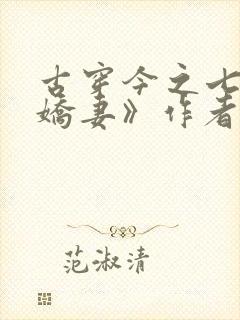 古穿今之七
娇妻》作者
范淑清